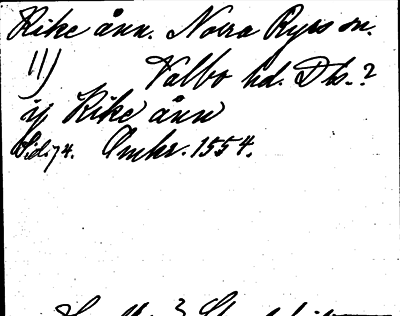 Rike ånn. Norra Ryrs sn.
11) Valbo hd. Dls.?
ij Rike ånn
Sid. 74. Omkr. 1554.